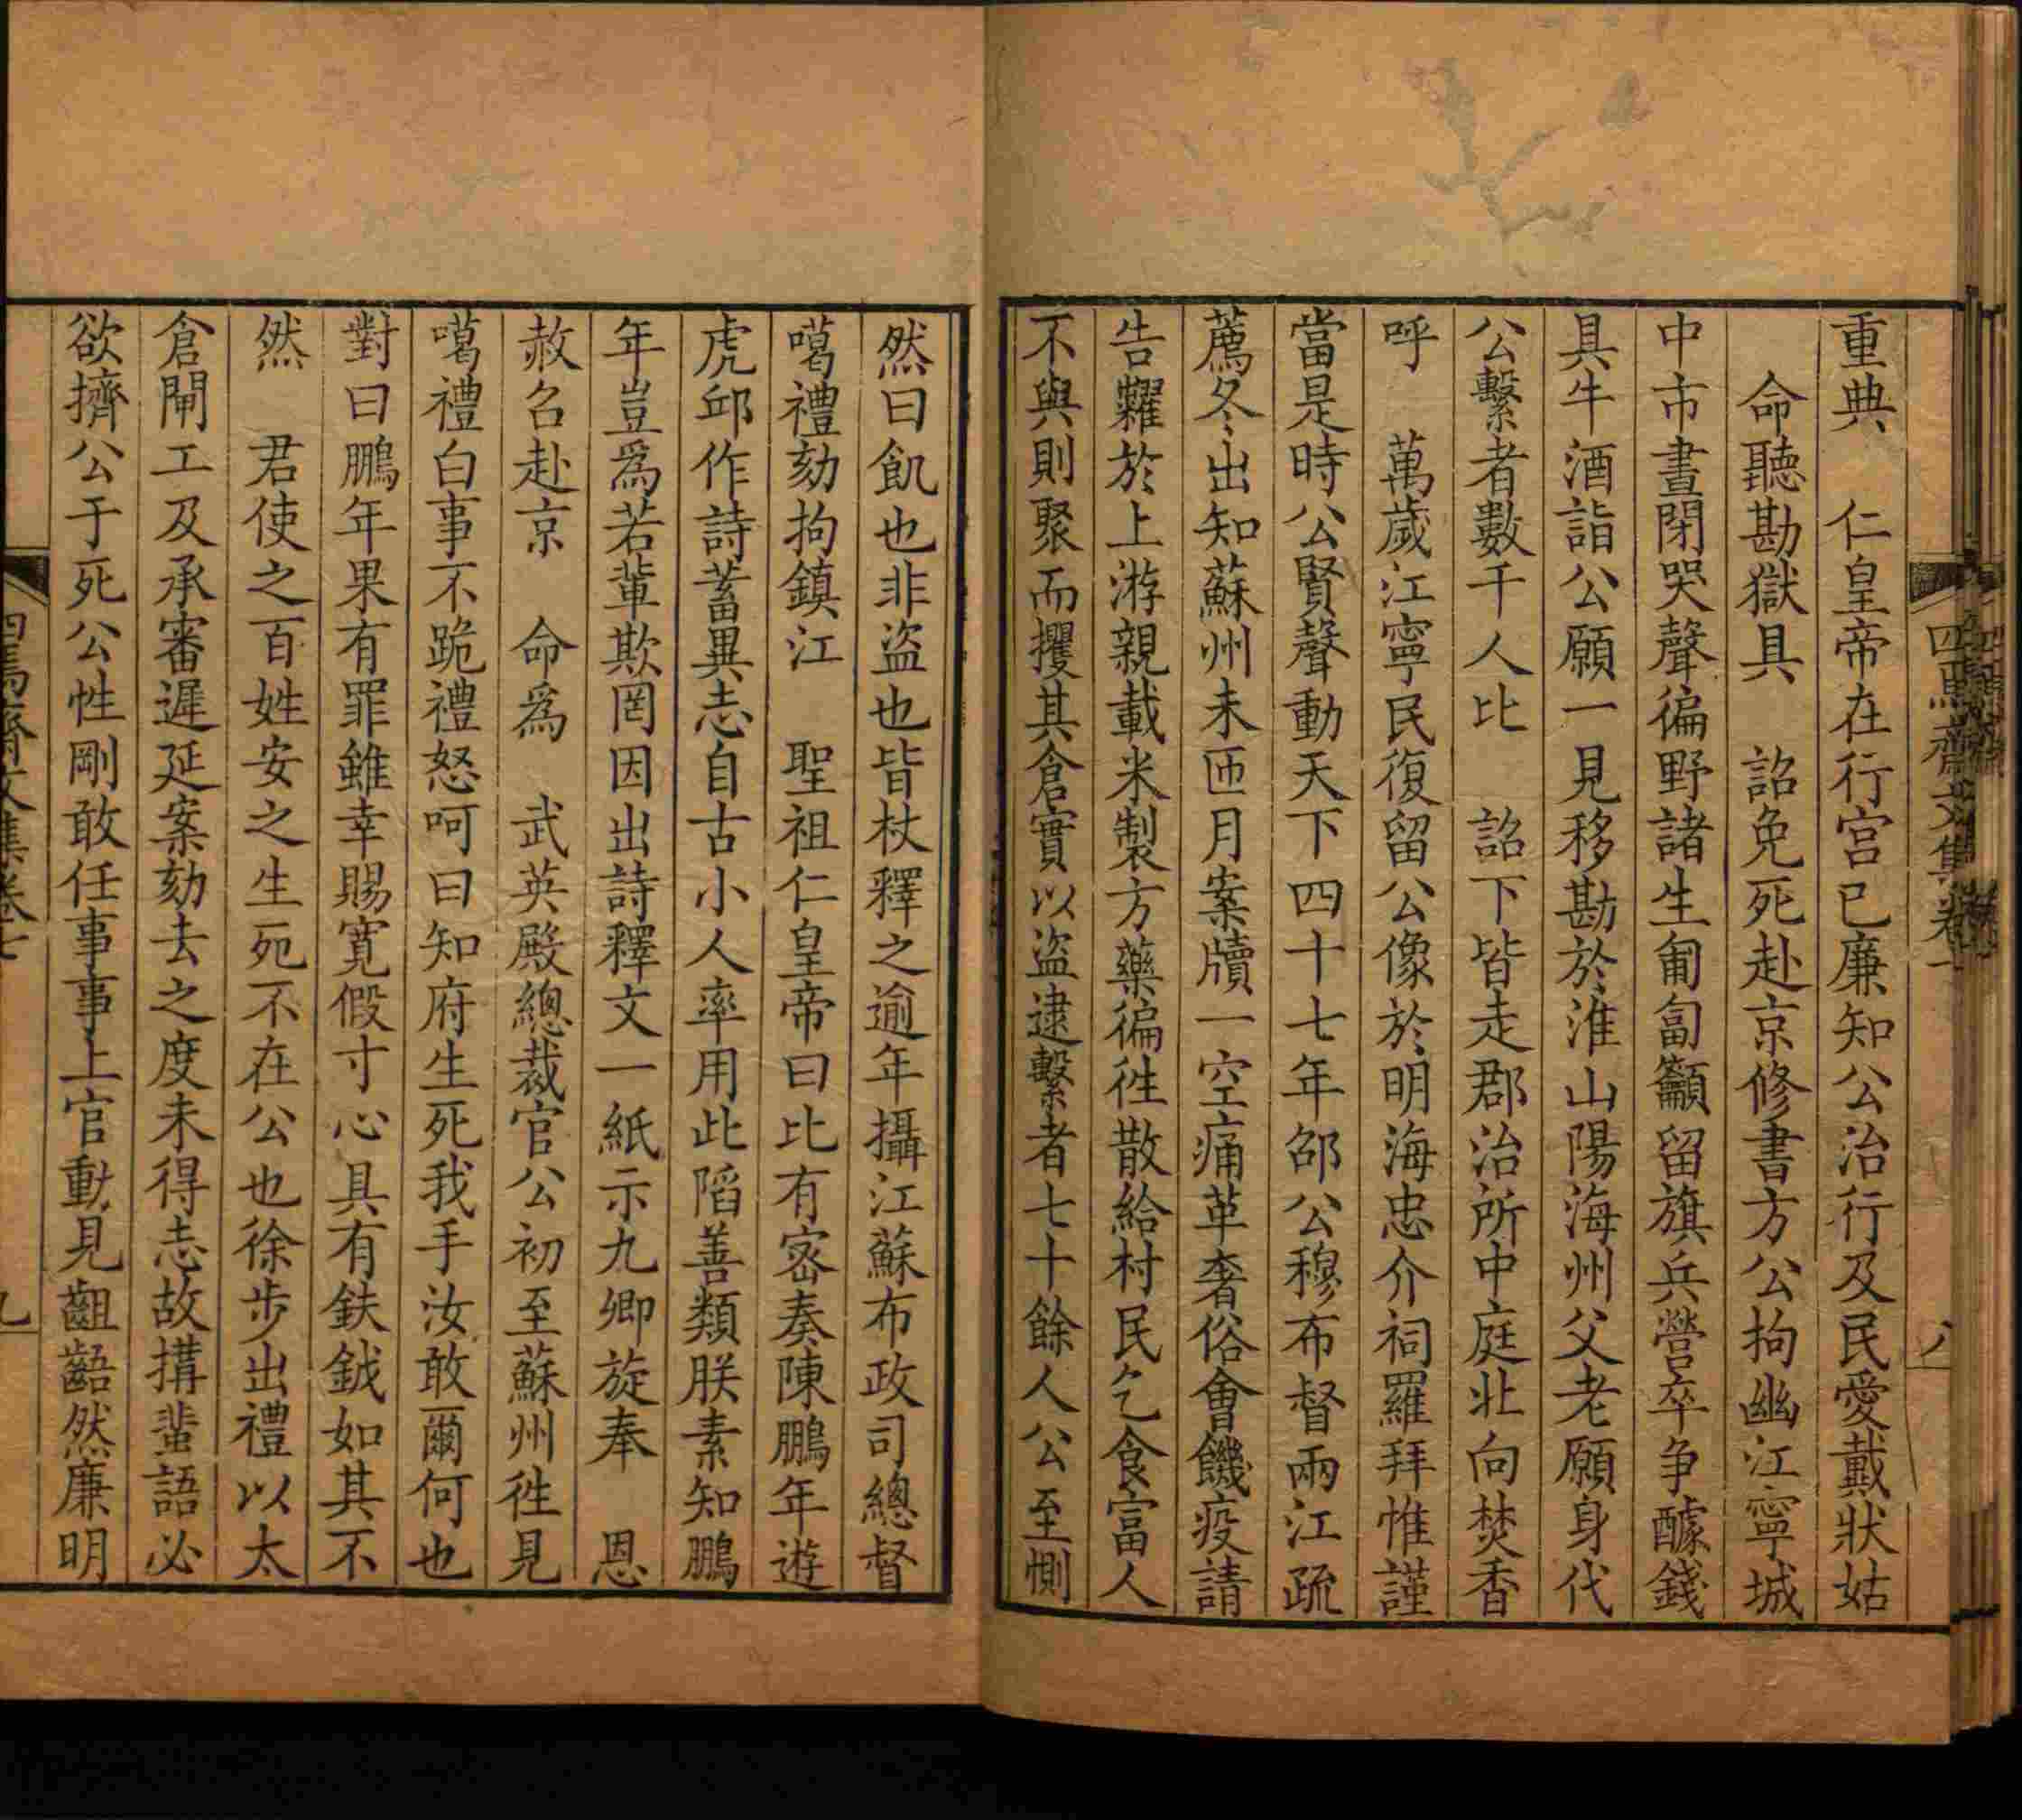 重典　仁皇帝在行宫已廉知公治行及民愛戴狀姑
命聽勘獄具　詔免死赴京修書方公拘幽江寧城
中市晝閉哭聲徧野諸生匍匐籲留旗兵營卒争醵錢
具牛酒詣公願一見移勘於淮山陽海州父老願身代
公繫者數千人比　詔下皆走郡治所中庭北向焚香
呼　萬歲江寧民復留公像於明海忠介祠羅拜惟謹
當是時公賢聲動天下四十七年邵公穆布督兩江疏
薦冬出知蘇州未匝月案牘一空痛革奢俗會饑疫請
告糶於上游親載米製方藥徧徃散給村民乞食富人
不與則聚而攫其倉實以盜逮繫者七十餘人公至惻
然曰飢也非盜也皆杖釋之逾年攝江蘇布政司總督
噶禮劾拘鎮江　聖祖仁皇帝曰比有宻奏陳鵬年遊
虎邱作詩蓄異志自古小人率用此陷善類朕素知鵬
年豈爲若輩欺罔因出詩釋文一紙示九卿旋奉　恩
赦召赴京　命爲　武英殿總裁官公初至蘇州徃見
噶禮白事不跪禮怒呵曰知府生死我手汝敢爾何也
對曰鵬年果有罪雖幸賜寛假寸心具有鈇鉞如其不
然　君使之百姓安之生死不在公也徐步出禮以太
倉閘工及承審遲延案劾去之度未得志故搆蜚語必
欲擠公于死公性剛敢任事事上官動見齟齬然廉明
四焉齋文集卷
八
四焉齋文集卷七
九